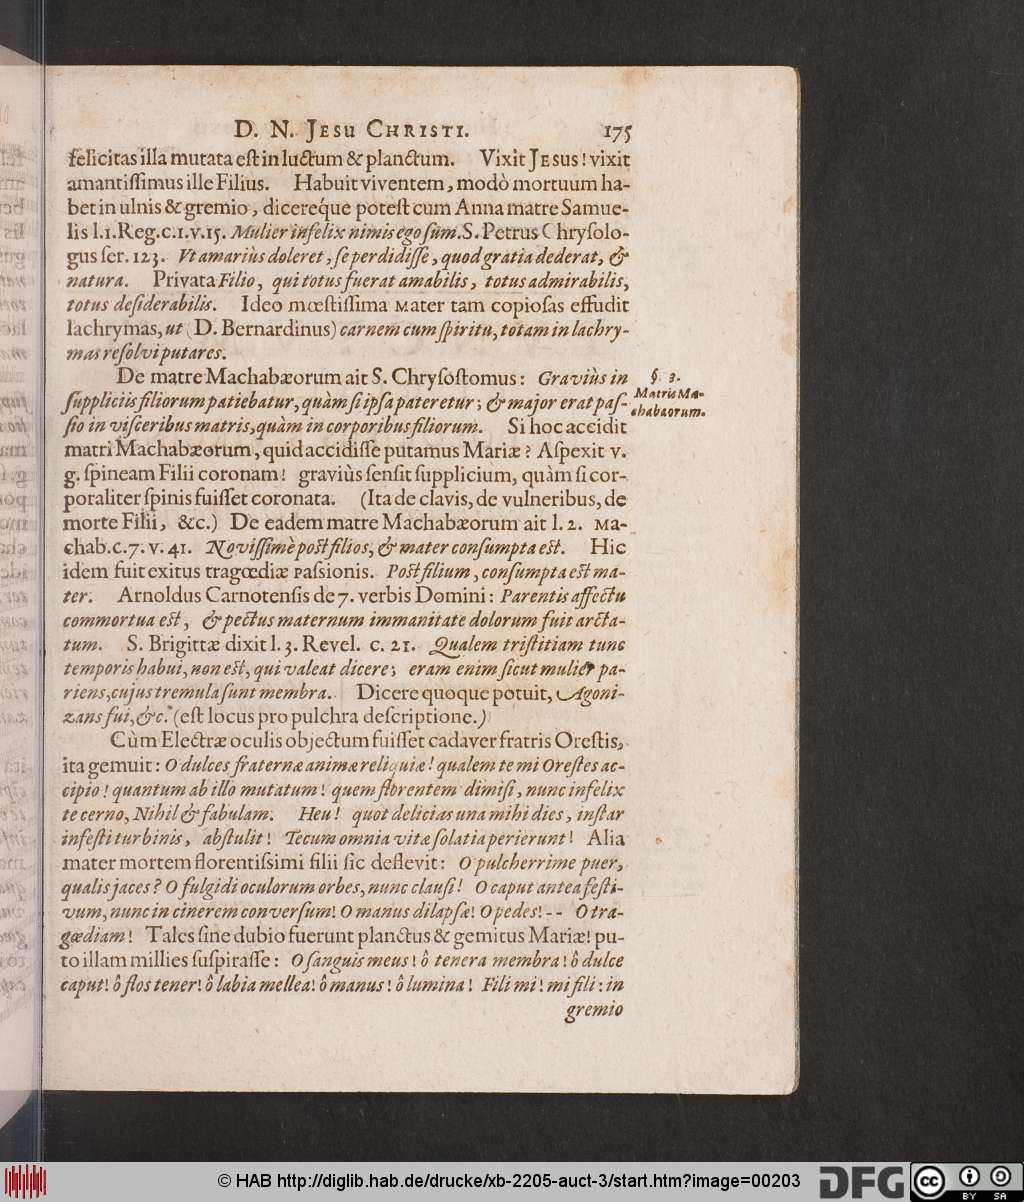 D. N. JESU CHRISTI. 175
felicitas illa mutata est in luctum & planctum. Vixit JESUS! vixit
amantissimus ille Filius. Habuit viventem, modò mortuum ha-
bet in ulnis & gremio, diceréque potest cum Anna matre Samue-
lis l.1.Reg.c.1.v.15. Mulier infelix nimis ego sum. S. Petrus Chrysolo-
gus ser. 123. Vt amariùs doleret, se perdidisse, quod gratia dederat, &
natura. Privata Filio, qui totus fuerat amabilis, totus admirabilis,
totus desiderabilis. Ideo mœstissima Mater tam copiosas effudit
lachrymas, ut (D. Bernardinus) carnem cum spiritu, totam in lachry-
mas resolvi putares.
De matre Machabæorum ait S. Chrysostomus: Graviùs in
§. 3.
Matris Ma-
chabæorum.
suppliciis filiorum patiebatur, quàm si ipsa pateretur; & major erat pas-
sio in visceribus matris, quàm in corporibus filiorum. Si hoc accidit
matri Machabæorum, quid accidisse putamus Mariæ? Aspexit v.
g. spineam Filii coronam! graviùs sensit supplicium, quàm si cor-
poraliter spinis fuisset coronata. (Ita de clavis, de vulneribus, de
morte Filii, &c.) De eadem matre Machabæorum ait l. 2. Ma-
chab.c.7. v. 41. Novissimè post filios, & mater consumpta est. Hic
idem fuit exitus tragœdiæ Passionis. Post filium, consumpta est ma-
ter. Arnoldus Carnotensis de 7. verbis Domini: Parentis affectu
commortua est, & pectus maternum immanitate dolorum fuit arcta-
tum. S. Brigittæ dixit l. 3. Revel. c. 21. Qualem tristitiam tunc
temporis habui, non est, qui valeat dicere; eram enim sicut mulier pa-
riens, cujus tremula sunt membra. Dicere quoque potuit, Agoni-
zans fui, &c. (est locus pro pulchra descriptione.)
Cùm Electræ oculis objectum fuisset cadaver fratris Orestis,
ita gemuit: O dulces fraternæ animæ reliquiæ! qualem te mi Orestes ac-
cipio! quantum ab illo mutatum! quem florentem dimisi, nunc infelix
te cerno, Nihil & fabulam. Heu! quot delicias una mihi dies, instar
infesti turbinis, abstulit! Tecum omnia vitæ solatia perierunt! Alia
mater mortem florentissimi filii sic deflevit: O pulcherrime puer,
qualis jaces? O fulgidi oculorum orbes, nunc clausi! O caput antea festi-
vum, nunc in cinerem conversum! O manus dilapsæ! O pedes! -- O tra-
gœdiam! Tales sine dubio fuerunt planctus & gemitus Mariæ! pu-
to illam millies suspirasse: O sanguis meus! ô tenera membra! ô dulce
caput! ô flos tener! ô labia mellea! ô manus! ô lumina! Fili mi! mi fili: in
gremio
© HAB http://diglib.hab.de/drucke/xb-2205-auct-3/start.htm?image=00203
DFG
cc
BY SA